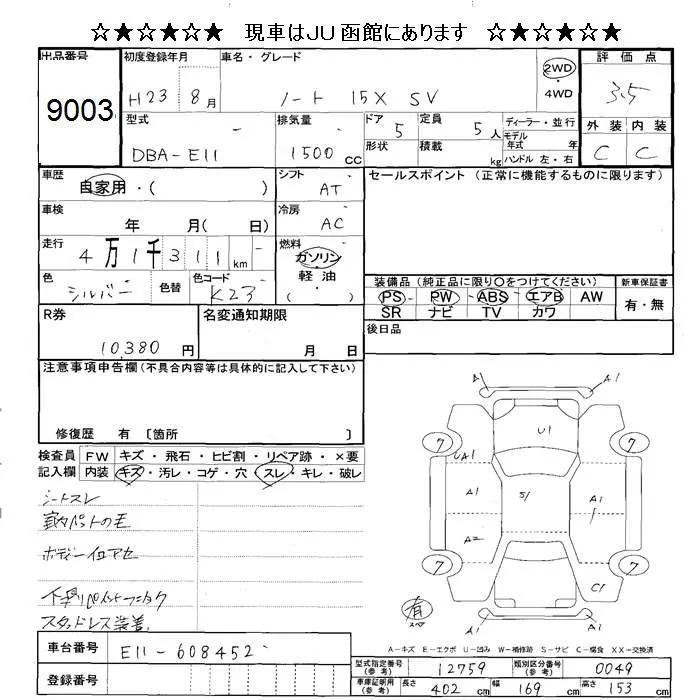 ☆★☆★☆★ 現車はJU函館にあります ☆★☆★☆★
出品番号 9003
初度登録年月 H23 8月
車名・グレード ノート 15X SV
2WD ・ 4WD
評価点 3.5
型式 DBA-E11
排気量 1500 cc
ドア 5
形状
定員 5人
積載 kg
ディーラー・並行
モデル年式 年
ハンドル 左・右
外装 内装
C C
車歴 自家用・( )
シフト AT
セールスポイント (正常に機能するものに限ります)
車検 年 月( 日)
冷房 AC
走行 4万1千311km
燃料 ガソリン・軽油・( )
色 シルバー 色替
色コード K23
装備品 (純正品に限り〇をつけてください)
新車保証書
PS PW ABS エアB AW
有・無
SR ナビ TV カワ
R券 10,380円
名変通知期限 月 日
後日品
注意事項申告欄 (不具合内容等は具体的に記入して下さい)
修復歴 有 〔箇所 〕
検査員記入欄
FW キズ・飛石・ヒビ割・リペア跡・×要
内装 キズ・汚レ・コゲ・穴・スレ・キレ・破レ
シートスレ
室内ペットの毛
ボディー色アセ
スタッドレス装着
A1 A1
7 U1 7
UA1
A1 S1 A1
A2
7 7
C1
有
A1 A1
A-キズ E-エクボ U-凹み W-補修跡 S-サビ C-腐食 XX-交換済
車台番号 E11-608452
登録番号
型式指定番号(参考) 12759
類別区分番号(参考) 0049
車庫証明用(参考) 長さ 402cm 幅 169cm 高さ 153cm